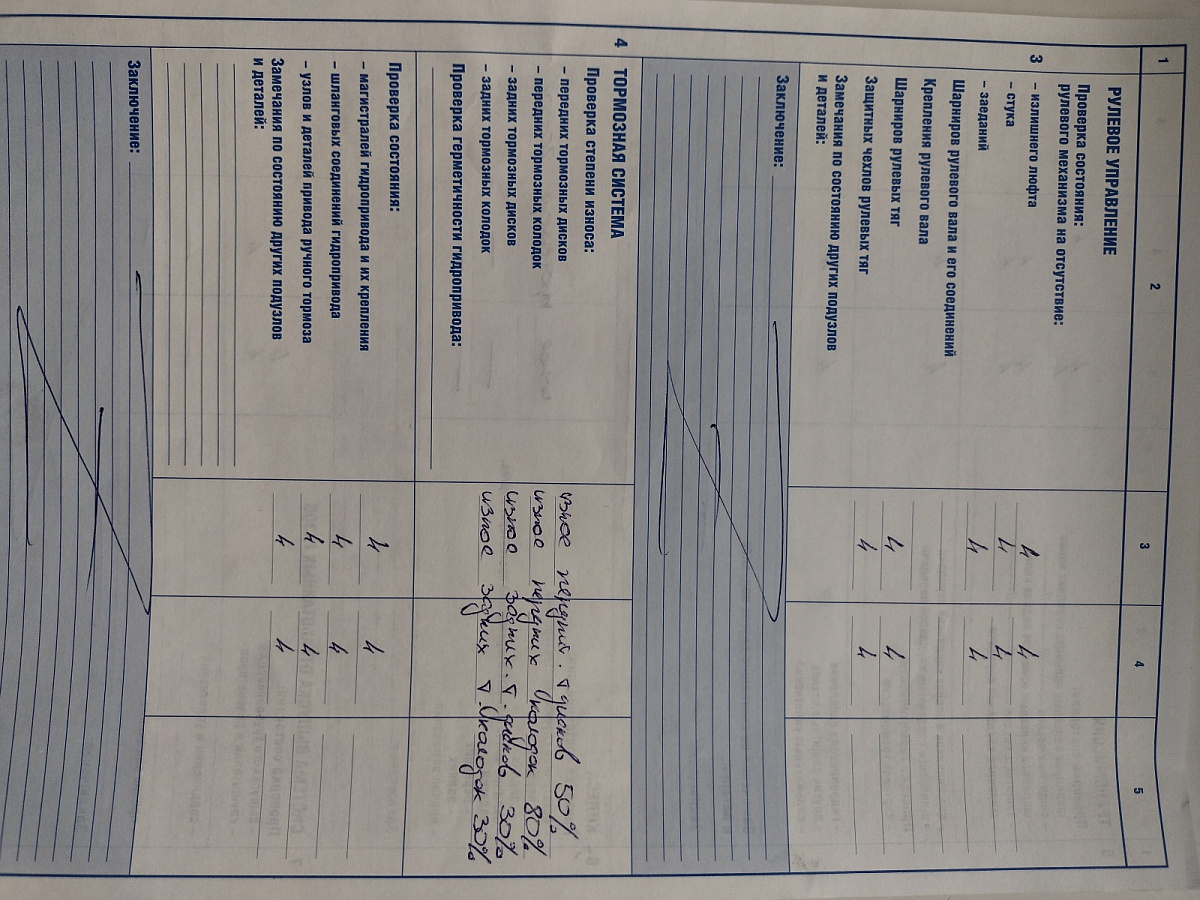 1 2 3 4 5
3 РУЛЕВОЕ УПРАВЛЕНИЕ
Проверка состояния:
рулевого механизма на отсутствие:
– излишнего люфта 4 4
– стука 4 4
– заеданий 4 4
Шарниров рулевого вала и его соединений
Крепления рулевого вала
Шарниров рулевых тяг 4 4
Защитных чехлов рулевых тяг 4 4
Замечания по состоянию других подузлов
и деталей:
Заключение:
4 ТОРМОЗНАЯ СИСТЕМА
Проверка степени износа:
– передних тормозных дисков износ передних. т дисков 50%
– передних тормозных колодок износ передних колодок 80%
– задних тормозных дисков износ задних. т. дисков 30%
– задних тормозных колодок износ задних т. колодок 30%
Проверка герметичности гидропривода:
Проверка состояния:
– магистралей гидропривода и их крепления 4 4
– шланговых соединений гидропривода 4 4
– узлов и деталей привода ручного тормоза 4 4
Замечания по состоянию других подузлов 4 4
и деталей:
Заключение: